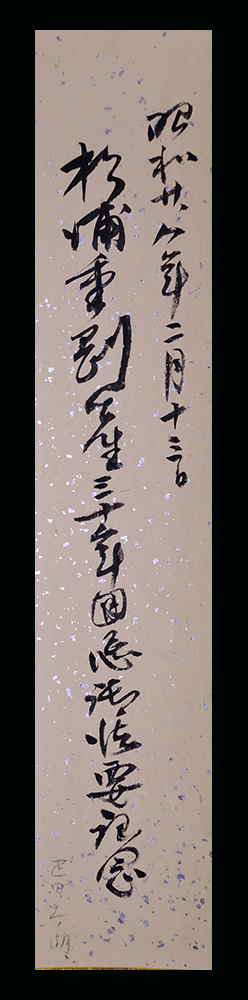 昭和廿八年二月十三日
杉浦重剛先生三十年回忌御法要記念